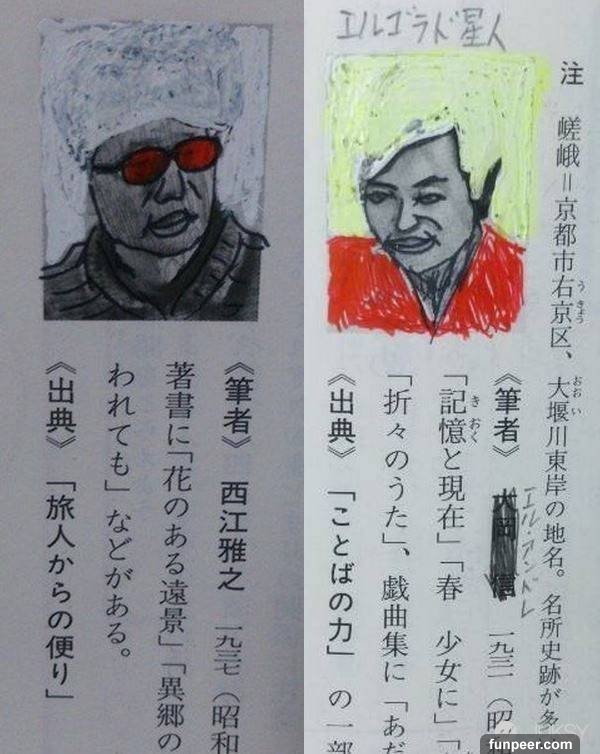 エルゴラド星人
注　嵯峨＝京都市右京区、大堰川東岸の地名。名所史跡が多
うきょう
おおい
エル・アンドレ
《筆者》　大岡　信　一九三一（昭
「記憶と現在」「春　少女に」「
きおく
「折々のうた」、戯曲集に「あだ
《出典》　「ことばの力」の一部
《筆者》　西江雅之　一九三七（昭和
著書に「花のある遠景」「異郷の
われても」などがある。
《出典》　「旅人からの便り」
funpeer.com